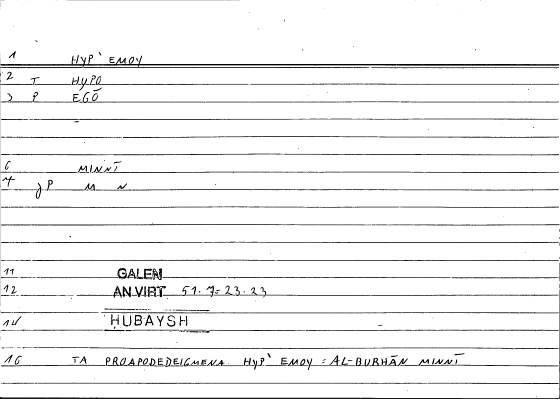 1 HYP' EMOY
2 T HYPO
3 P EGŌ
6 MINNĪ
7 JP M N
11 GALEN
12 AN.VIRT 51.7=23.23
14 ḤUBAYSH
16 TA PROAPODEDEIGMENA HYP' EMOY = AL-BURHĀN MINNĪ